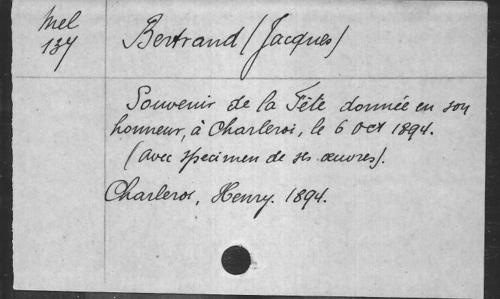 Mel
137
Bertrand (Jacques)
Souvenir de la Fête donnée en son
honneur, à Charleroi, le 6 oct 1894.
(avec specimen de ses œuvres).
Charleroi, Henry. 1894.